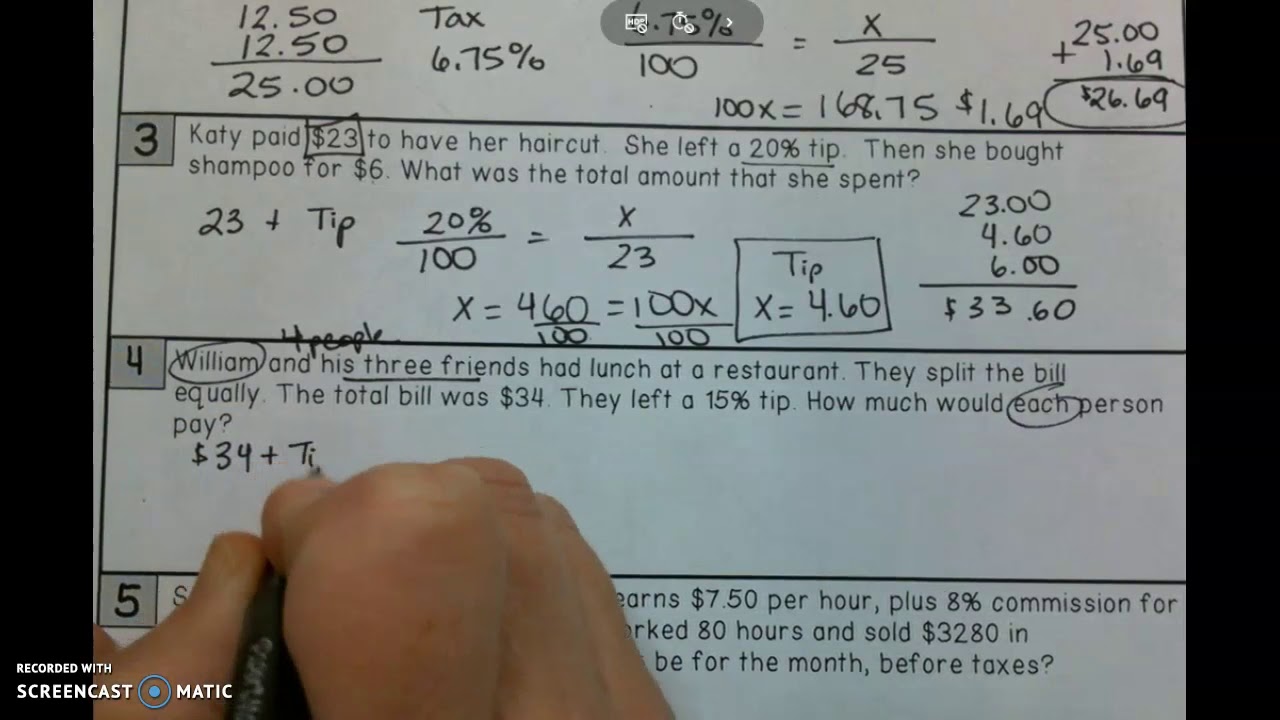 12.50
12.50
25.00
Tax
6.75%
.75%
100
=
x
25
100x = 168.75 $1.69
25.00
+ 1.69
$26.69
3 Katy paid $23 to have her haircut. She left a 20% tip. Then she bought
shampoo for $6. What was the total amount that she spent?
23 + Tip
20%
100
=
x
23
x = 460 = 100x
100 100
Tip
x = 4.60
23.00
4.60
6.00
$33.60
4 people
4 William and his three friends had lunch at a restaurant. They split the bill
equally. The total bill was $34. They left a 15% tip. How much would each person
pay?
$34 + Ti
5 S earns $7.50 per hour, plus 8% commission for
orked 80 hours and sold $3280 in
be for the month, before taxes?
RECORDED WITH
SCREENCAST MATIC